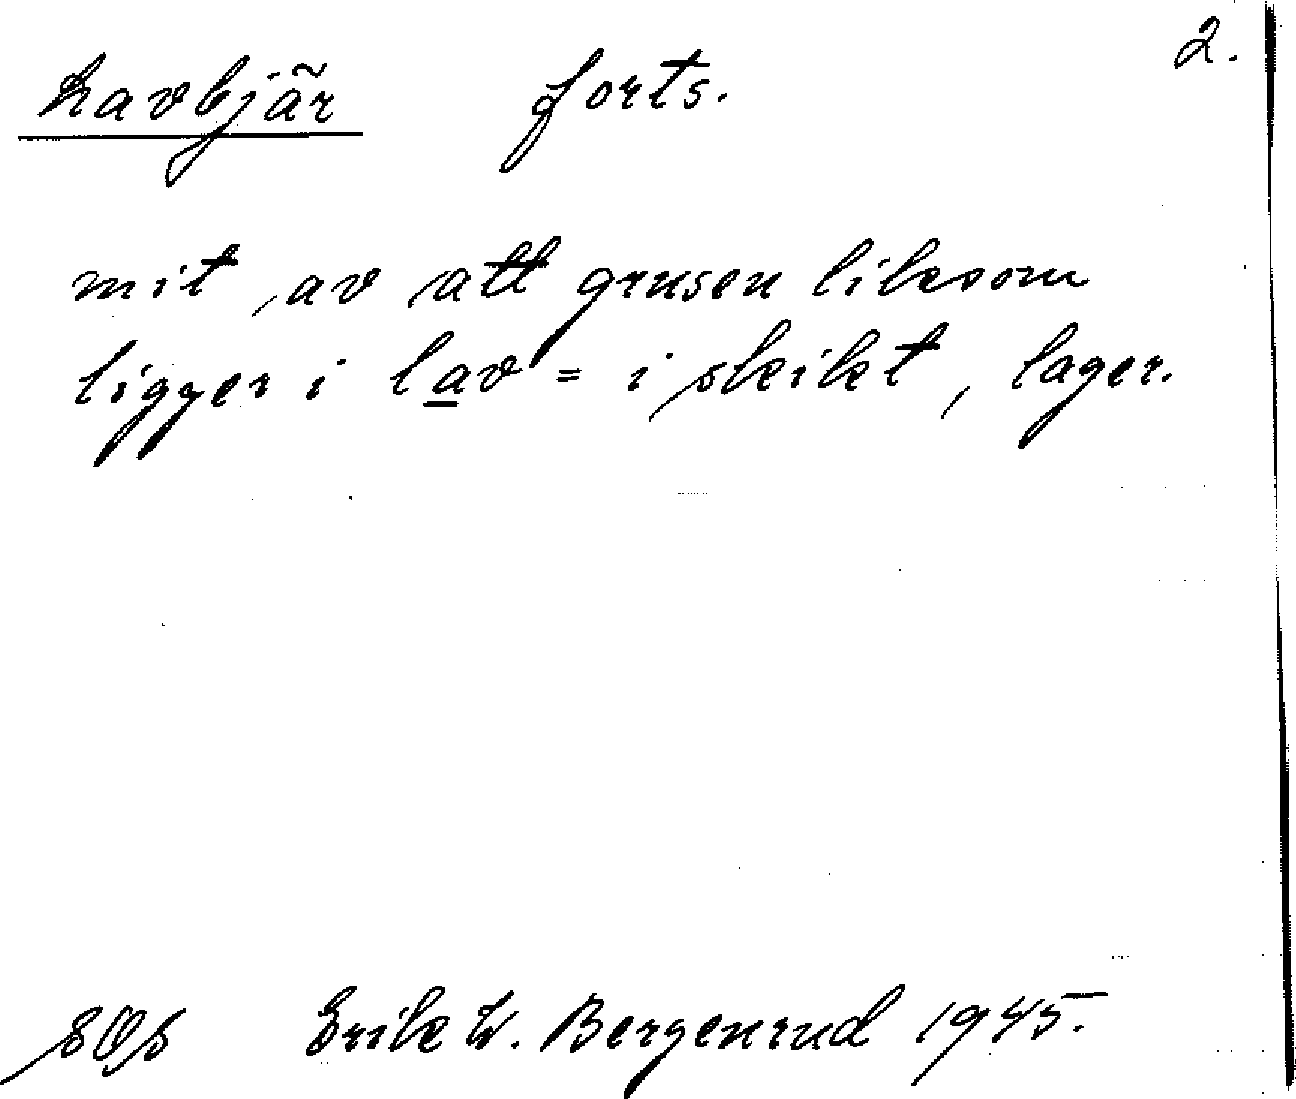 2.
Lavbjär forts.
mit av att grusen liksom
ligger i lav = i skikt, lager.
SOS Erik W. Bergenrud 1945.